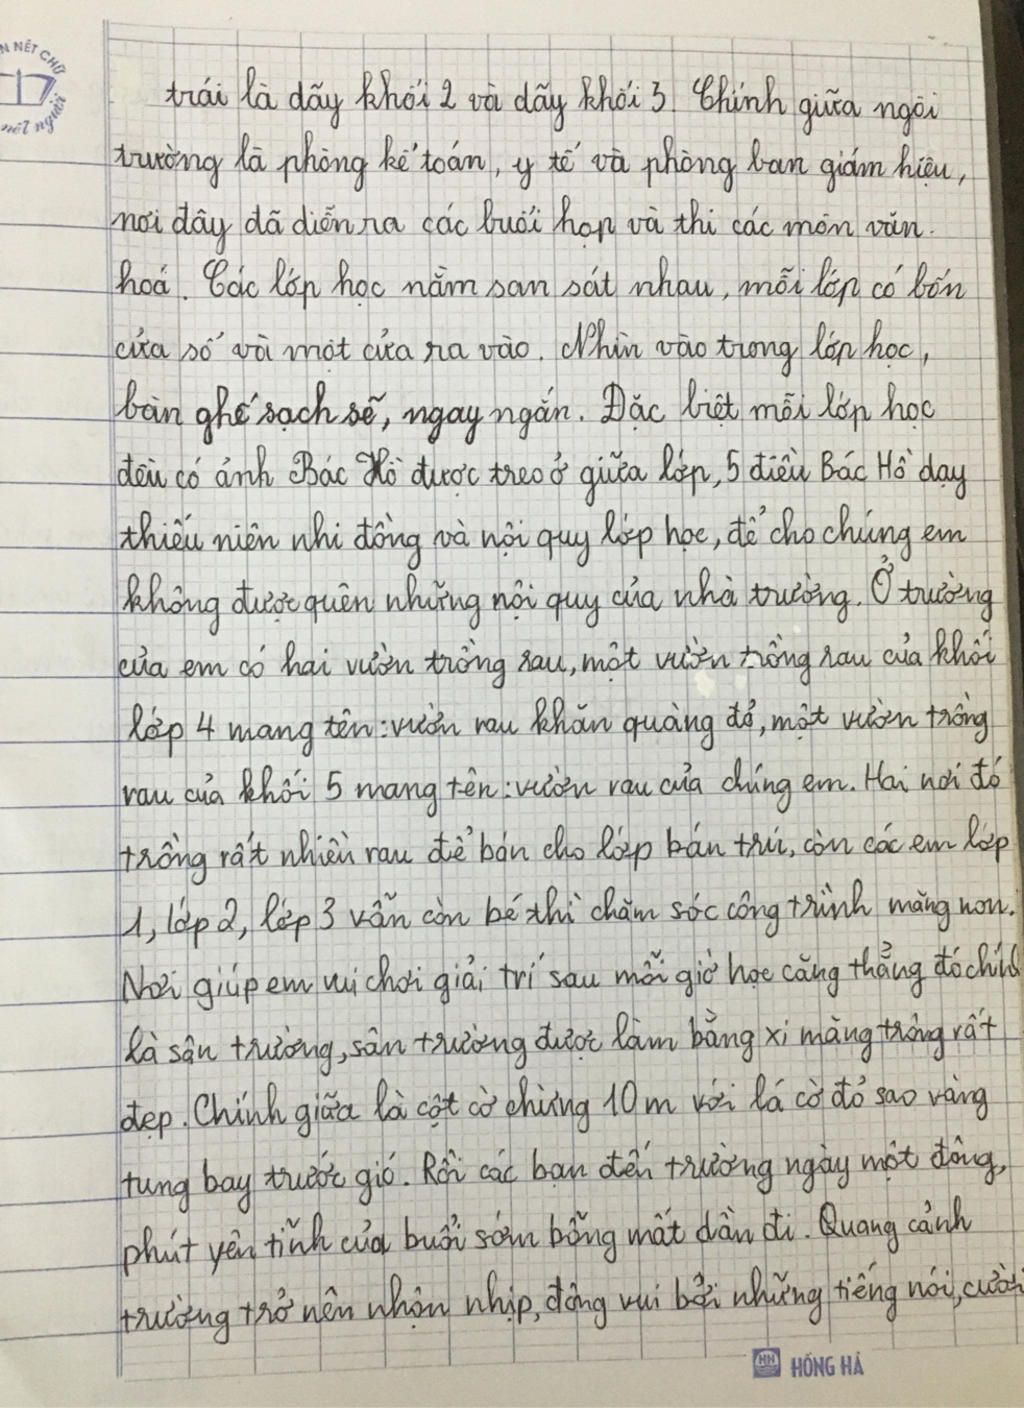 N NÉT CHỮ
nết người
trái là dãy khối 2 và dãy khối 3. Chính giữa ngôi
trường là phòng kế toán, y tế và phòng ban giám hiệu,
nơi đây đã diễn ra các buổi họp và thi các môn văn
hoá. Các lớp học nằm san sát nhau, mỗi lớp có bốn
cửa sổ và một cửa ra vào. Nhìn vào trong lớp học,
bàn ghế sạch sẽ, ngay ngắn. Đặc biệt mỗi lớp học
đều có ảnh Bác Hồ được treo ở giữa lớp, 5 điều Bác Hồ dạy
thiếu niên nhi đồng và nội quy lớp học, để cho chúng em
không được quên những nội quy của nhà trường. Ở trường
của em có hai vườn trồng rau, một vườn trồng rau của khối
lớp 4 mang tên: vườn rau khăn quàng đỏ, một vườn trồng
rau của khối 5 mang tên: vườn rau của chúng em. Hai nơi đó
trồng rất nhiều rau để bán cho lớp bán trú, còn các em lớp
1, lớp 2, lớp 3 vẫn còn bé thì chăm sóc công trình măng non.
Nơi giúp em vui chơi giải trí sau mỗi giờ học căng thẳng đó chính
là sân trường, sân trường được làm bằng xi măng trông rất
đẹp. Chính giữa là cột cờ chừng 10 m với lá cờ đỏ sao vàng
tung bay trước gió. Rồi các bạn đến trường ngày một đông,
phút yên tĩnh của buổi sớm bỗng mất dần đi. Quang cảnh
trường trở nên nhộn nhịp, đông vui bởi những tiếng nói, cười
HỒNG HÀ